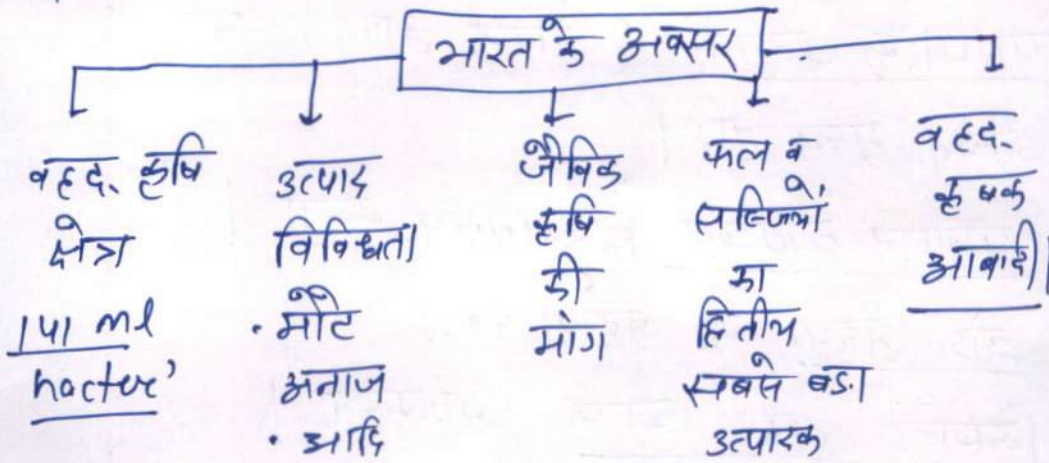 भारत के अवसर
वहद. कृषि
क्षेत्र
141 ml
hacter'
उत्पाद
विविधता
• मोटे
अनाज
• आदि
जैविक
कृषि
की
मांग
फल व
सब्जियों
का
द्वितीय
सबसे बडा
उत्पादक
वहद.
कृषक
आबादी